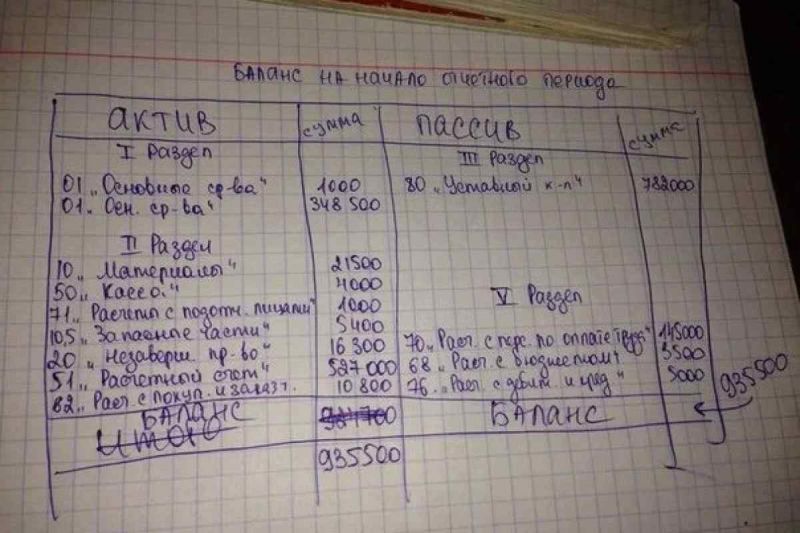 Баланс на начало отчетного периода
Актив сумма Пассив сумма
I Раздел III Раздел
01 „Основные ср-ва“ 1000 80 „Уставный к-л“ 782000
01 „Осн. ср-ва“ 348 500
II Раздел
10 „Материалы“ 21500
50 „Касса“ 4000 V Раздел
71 „Расчеты с подотч. лицами“ 1000
10,5 „Запасные части“ 5400 70 „Расч. с перс. по оплате труда“ 145000
20 „Незаверш. пр-во“ 16 300 68 „Расч. с бюджетом“ 3500
51 „Расчетный счет“ 527 000 76 „Расч. с дебит. и кред.“ 5000
62 „Расч. с покуп. и заказч. 10 800 935 500
Баланс Баланс
Итого
935500